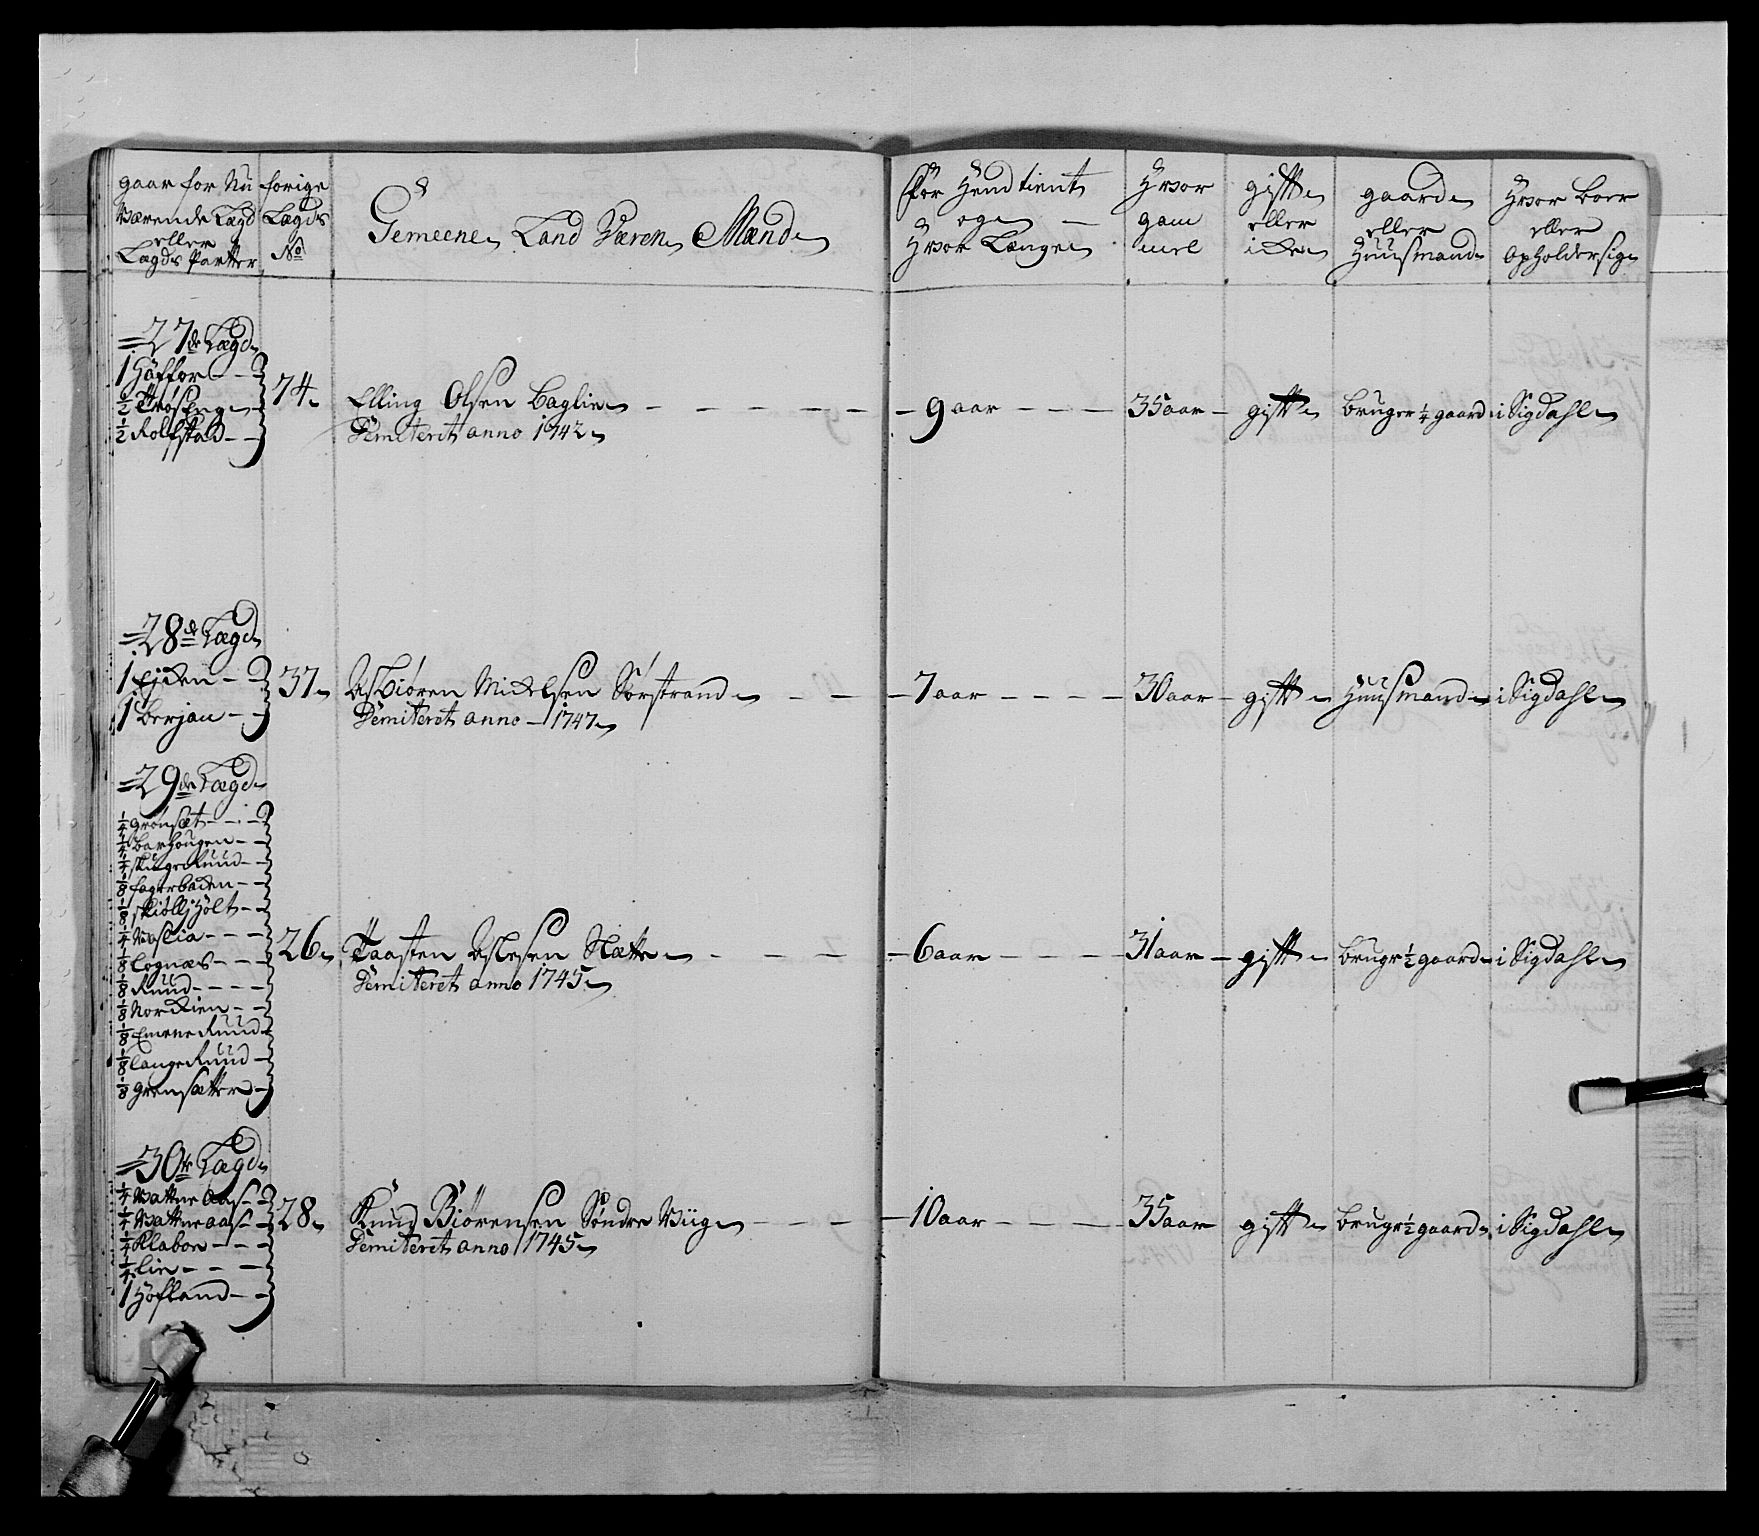 gaar for Nu
Værende Lægd
eller
Lægds Parter
forige
Lægds
No
Gemeene Land Væren Mænd
for Hend tient
og
Hvor Længe
Hvor
gam
mel
gift
eller
icke
gaard
eller
Huusmand
Hvor boer
eller
opholder sig
27de Lægd
1 Hoffor
1/2 Trøseng
1/2 Rolfstad
74
Elling Olsen Baglie
Demiteret anno 1742
9 aar
35 aar
gift
bruger 1/4 gaard
i Sigdahl
28de Lægd
1 Ejden
1 Berjan
37
Asbiøren Mickelsen Sørstrand
Demiteret anno 1747
7 aar
30 aar
gift
Huusmand
i Sigdahl
29de Lægd
1/4 Grønsæt
1/4 Barhougen
1/4 Skugerruud
1/8 Fagerbacken
1/8 Skiølljholt
1/4 Vaslia
1/8 Lognæs
1/8 Ruud
1/8 Nordlien
1/8 Enerneruud
1/8 Langeruud
1/8 Grensætter
26
Taasten Aslesen Slætte
Demiteret anno 1745
6 aar
31 aar
gift
bruger 1/2 gaard
i Sigdahl
30te Lægd
1/4 Vattneaas
1/4 Vattneaas
1/4 Klaboe
1/4 Lie
1 Hofland
28
Knud Biørensen Søndre Viig
Demiteret anno 1745
10 aar
35 aar
gift
bruger 1/2 gaard
i Sigdahl